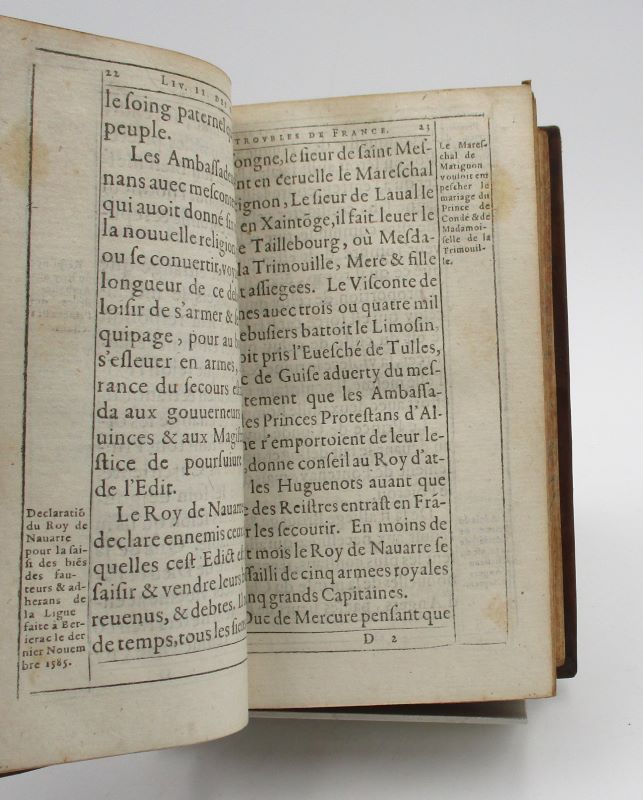 22
LIV. II. DES
le ſoing paternel
peuple.
Les Ambaſſade
nans auec meſconte
qui auoit donné
la nouuelle religion
ou ſe conuertir, voy
longueur de ce de
loiſir de s'armer &
quipage, pour au
s'eſleuer en armes,
rance du ſecours
da aux gouuerneurs
uinces & aux Magiſ
ſtice de pourſuiure
de l'Edit.
Le Roy de Nauarr
declare ennemis ceux
quelles ceſt Edict
ſaiſir & vendre leurs
reuenus, & debtes. Il
de temps, tous les ſie
Declaratiõ
du Roy de
Nauarre
pour la ſai-
ſi des biẽs
des fau-
teurs & ad-
herans de
la Ligue
faite à Ber-
ierac le der
nier Nouem
bre 1585.
TROVBLES DE FRANCE.
23
ongne, le ſieur de ſaint Meſ-
nt en ceruelle le Mareſchal
ignon, Le ſieur de Laual le
en Xaintõge, il fait leuer le
e Taillebourg, où Meſda-
la Trimouille, Mere & fille
t aſſiegees. Le Viſconte de
nes auec trois ou quatre mil
ebuſiers battoit le Limoſin,
oit pris l'Eueſché de Tulles,
c de Guiſe aduerty du meſ-
tement que les Ambaſſa-
les Princes Proteſtans d'Al-
ne r'emportoient de leur le-
, donne conſeil au Roy d'at-
les Huguenots auant que
e des Reiſtres entraſt en Frã-
r les ſecourir. En moins de
t mois le Roy de Nauarre ſe
ſſailli de cinq armees royales
nq grands Capitaines.
Duc de Mercure penſant que
D 2
Le Mareſ-
chal de
Matignon
vouloit em
peſcher le
mariage du
Prince de
Condé & de
Madamoi-
ſelle de la
Trimouil-
le.